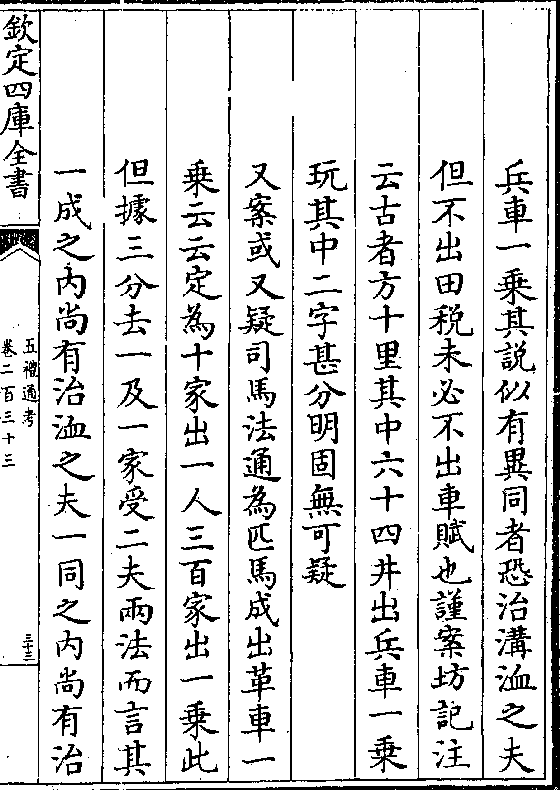 兵車一乗其説似有異同者恐治溝洫之夫
但不出田税未必不出車賦也謹案坊記注
云古者方十里其中六十四井出兵車一乗
玩其中二字甚分明固無可疑
又案或又疑司馬法通為匹馬成出革車一
乗云云定為十家出一人三百家出一乗此
但據三分去一及一家受二夫兩法而言其
一成之内尚有治洫之夫一同之内尚有治
欽定四庫全書
五禮通考
卷二百三十三
三十三